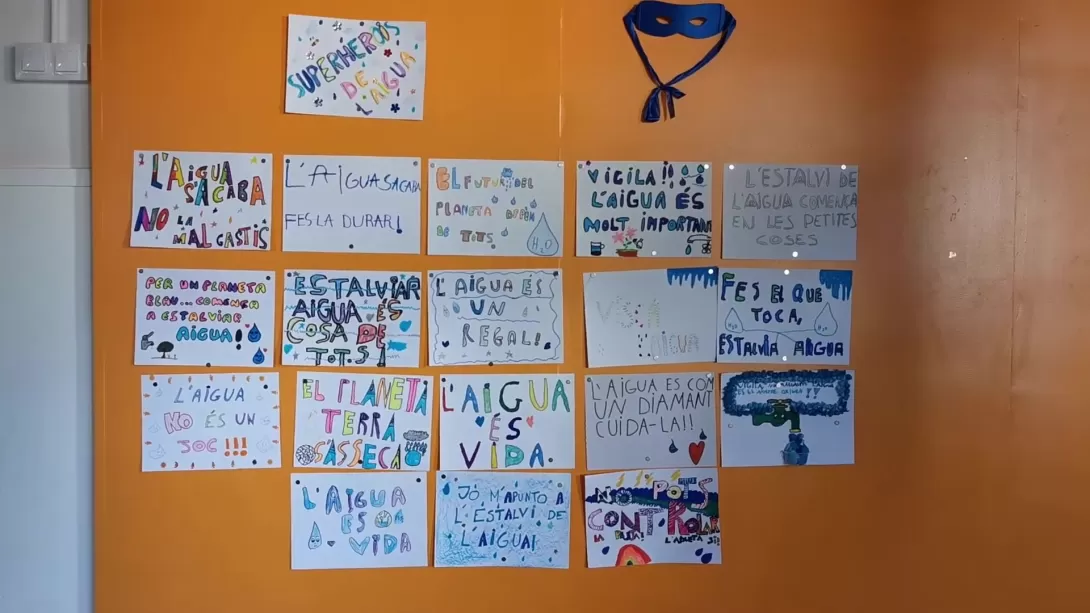 SUPERHEROIS
DE
L'AIGUA
L'AIGUA
S'ACABA
NO LA
MALGASTIS
L'AIGUA S'ACABA
FES LA DURAR!
EL FUTUR DEL
PLANETA DEPÈN
DE TOTS.
H2O
VIGILA!!
L'AIGUA ÉS
MOLT IMPORTANT
L'ESTALVI DE
L'AIGUA COMENÇA
EN LES PETITES
COSES
PER UN PLANETA
BLAU... COMENÇA
A ESTALVIAR
AIGUA!
ESTALVIAR
AIGUA ÉS
COSA DE
TOTS!
L'AIGUA ÉS
UN
REGAL!
AIGUA
FES EL QUE
TOCA,
H2O
H2O
ESTALVIA AIGUA
L'AIGUA
NO ÉS UN
JOC!!!
EL PLANETA
TERRA
S'ASSECA
L'AIGUA
ÉS
VIDA.
L'AIGUA ES COM
UN DIAMANT
CUIDA-LA!!
L'AIGUA
ES
VIDA
JO, M'APUNTO A
L'ESTALVI DE
L'AIGUA!
NO POTS
CONTROLAR
LA PLUJA! L'AIXETA SÍ!